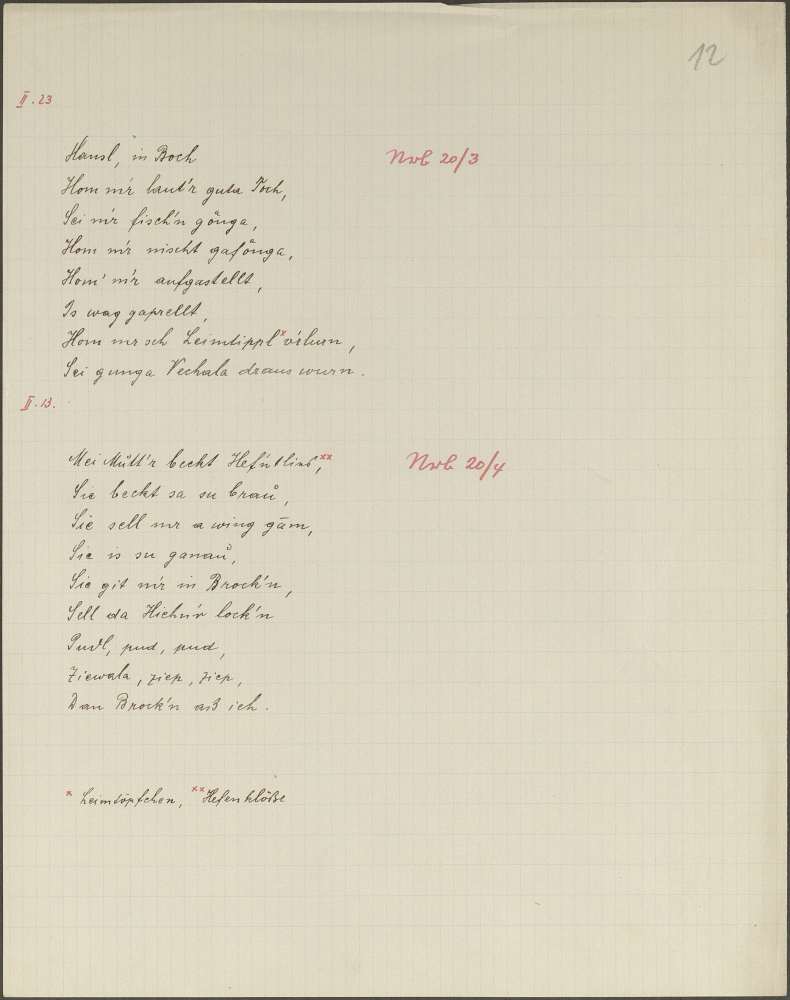 12
II. 23
Hansl, in Boch Nrb 20/3
Hom m'r laut'r guta Toch,
Sei m'r fisch'n gånga,
Hom m'r nischt gafånga,
Hom' m'r aufgastellt,
Is wag gaprellt,
Hom mr sch Leimtippl* v'rlurn,
Sei gunga Vechala draus wurn.
II. 13.
Mei Můtt'r beckt **, Nrb 20/4
Sie beckt sa su braů,
Sie sell mr a wing gām,
Sie is su ganaů,
Sie git m'r in Brock'n,
Sell da Hiehn'r lock'n
Pudl, pud, pud,
Ziewala, ziep, ziep,
Dan Brock'n aß ich.
* Leimtöpfchen, ** Hefenklöße